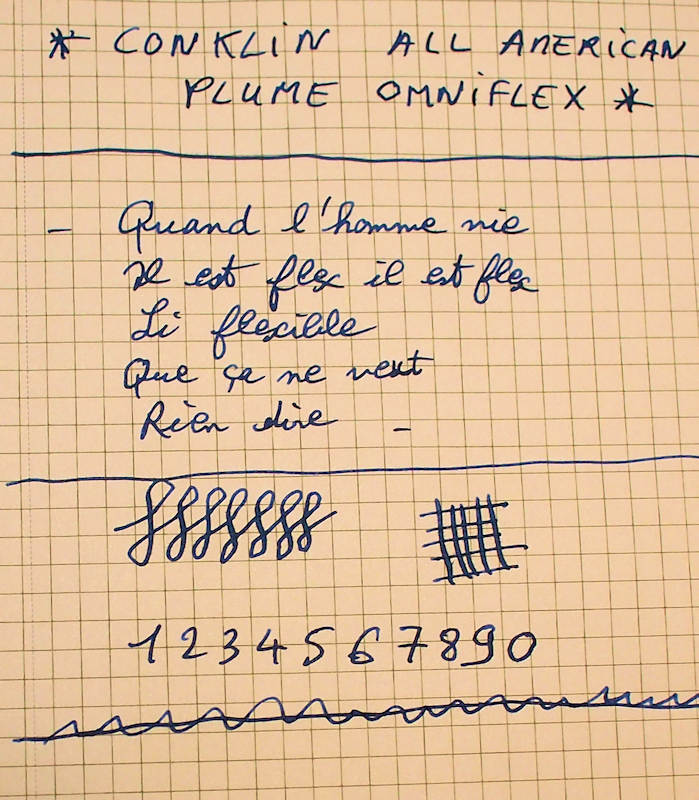 * CONKLIN ALL AMERICAN
PLUME OMNIFLEX *
- Quand l'homme nie
Il est flex il est flex
Li flexible
Que ça ne veut
Rien dire -
1 2 3 4 5 6 7 8 9 0